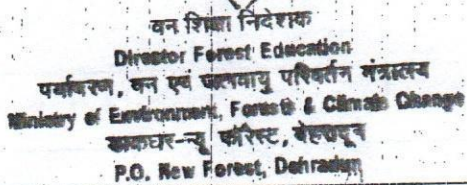 वन शिक्षा निदेशक
Director Forest Education
पर्यावरण, वन एवं जलवायु परिवर्तन मंत्रालय
Ministry of Environment, Forests & Climate Change
डाकघर-न्यू फॉरेस्ट, देहरादून
P.O. New Forest, Dehradun